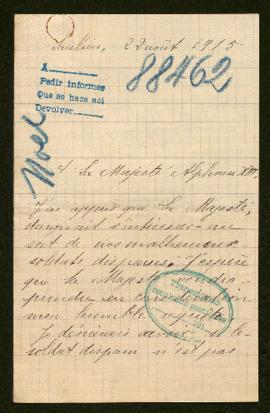 2 août 1915
88462
A
Pedir informes
Que se hace así
Devolver
Noel
A Sa Majesté Alphonse XIII,
J'ai appris que Sa Majesté,
daignait s'intéresser au
sort de nos malheureux
soldats disparus. J'espère
que Sa Majesté voudra
prendre en considération
mon humble requête.
Je désirerais savoir si le
soldat disparu n'est pas